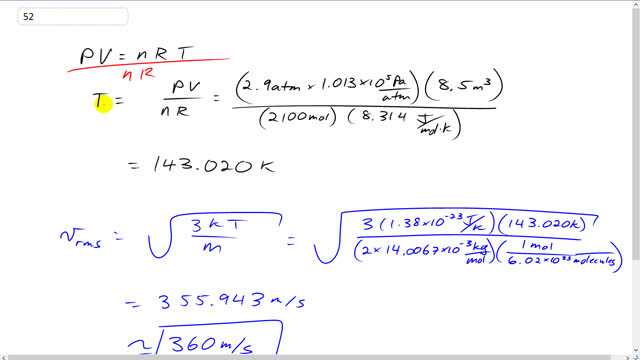 52
PV = nRT
nR
T = PV/nR = (2.9atm × 1.013×10⁵ Pa/atm)(8.5m³)/(2100mol)(8.314 J/mol·K)
= 143.020K
v_rms = √(3kT/m) = √(3(1.38×10⁻²³ J/K)(143.020K)/(2×14.0067×10⁻³ kg/mol)(1mol/6.02×10²³ molecules))
= 355.943 m/s
≈ 360 m/s